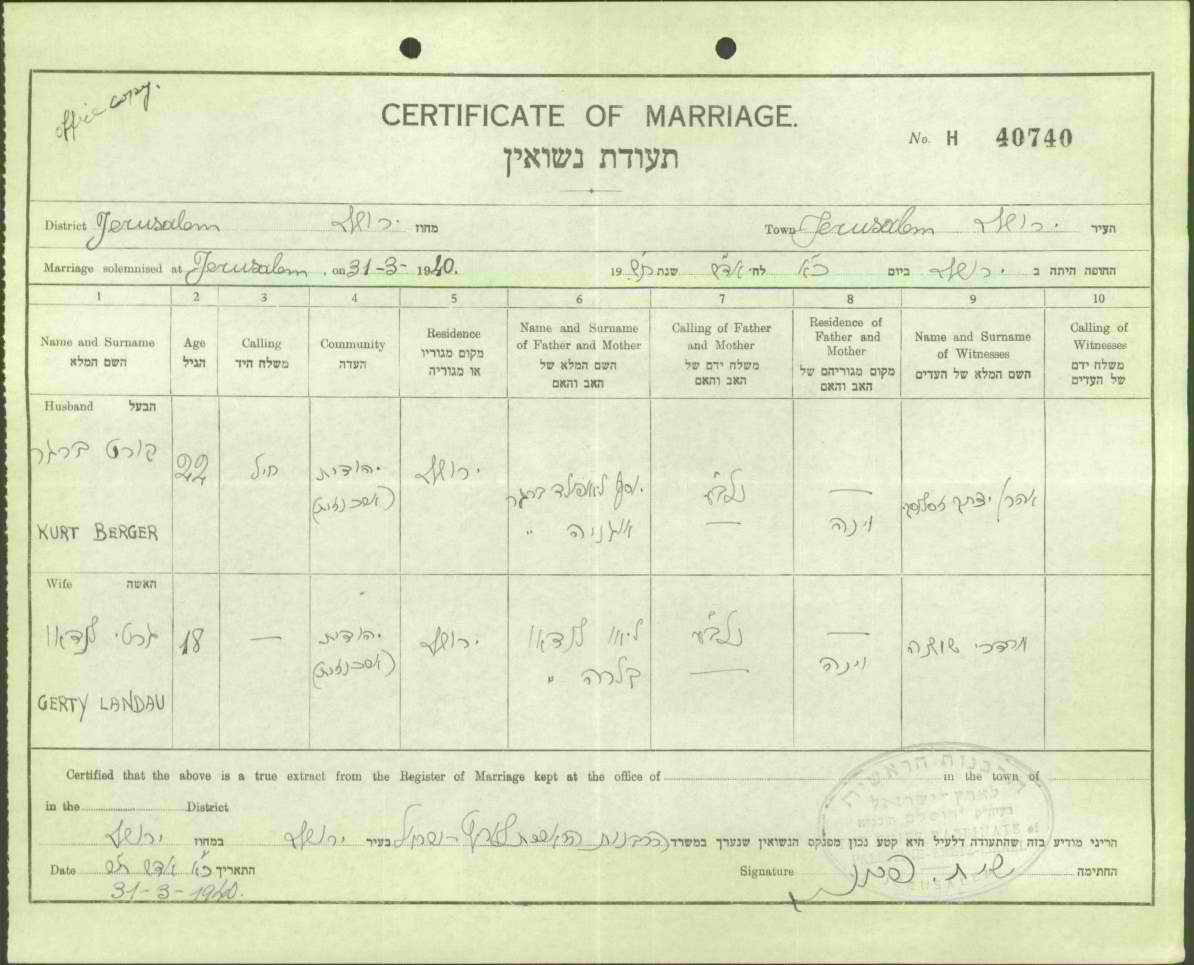 office copy.
CERTIFICATE OF MARRIAGE.
תעודת נשואין
No. H 40740
District Jerusalem ירושלם מחוז Town Jerusalem ירושלם העיר
Marriage solemnised at Jerusalem, on 31-3-1940. החופה היתה ב ירושלם ביום כ"א לח' אד"ש שנת ת"ש 19
1 2 3 4 5 6 7 8 9 10
Name and Surname
השם המלא
Age
הגיל
Calling
משלח היד
Community
העדה
Residence
מקום מגוריו
או מגוריה
Name and Surname
of Father and Mother
השם המלא של
האב והאם
Calling of Father
and Mother
משלח ידם של
האב והאם
Residence of
Father and
Mother
מקום מגוריהם של
האב והאם
Name and Surname
of Witnesses
השם המלא של העדים
Calling of
Witnesses
משלח ידם
של העדים
Husband הבעל
קורט ברגר
KURT BERGER
22
חיל
יהודית
(אשכנזית)
ירושלם
יוסף ליאופולד ברגר
אוגניה "
נלב"ע
—
—
וינה
אהרן יצחק
Wife האשה
גרטי לנדאו
GERTY LANDAU
18
—
יהודית
(אשכנזית)
ירושלם
ליאו לנדאו
קלרה "
נלב"ע
—
—
וינה
מרדכי
Certified that the above is a true extract from the Register of Marriage kept at the office of in the town of
in the District
הריני מודיע בזה שהתעודה דלעיל היא קטע נכון מפנקס הנשואין שנערך במשרד הרבנות הראשית לארץ-ישראל בעיר ירושלם במחוז ירושלם
Date כ"א אד"ש ת"ש התאריך Signature החתימה
31-3-1940.
הרבנות הראשית
לארץ ישראל